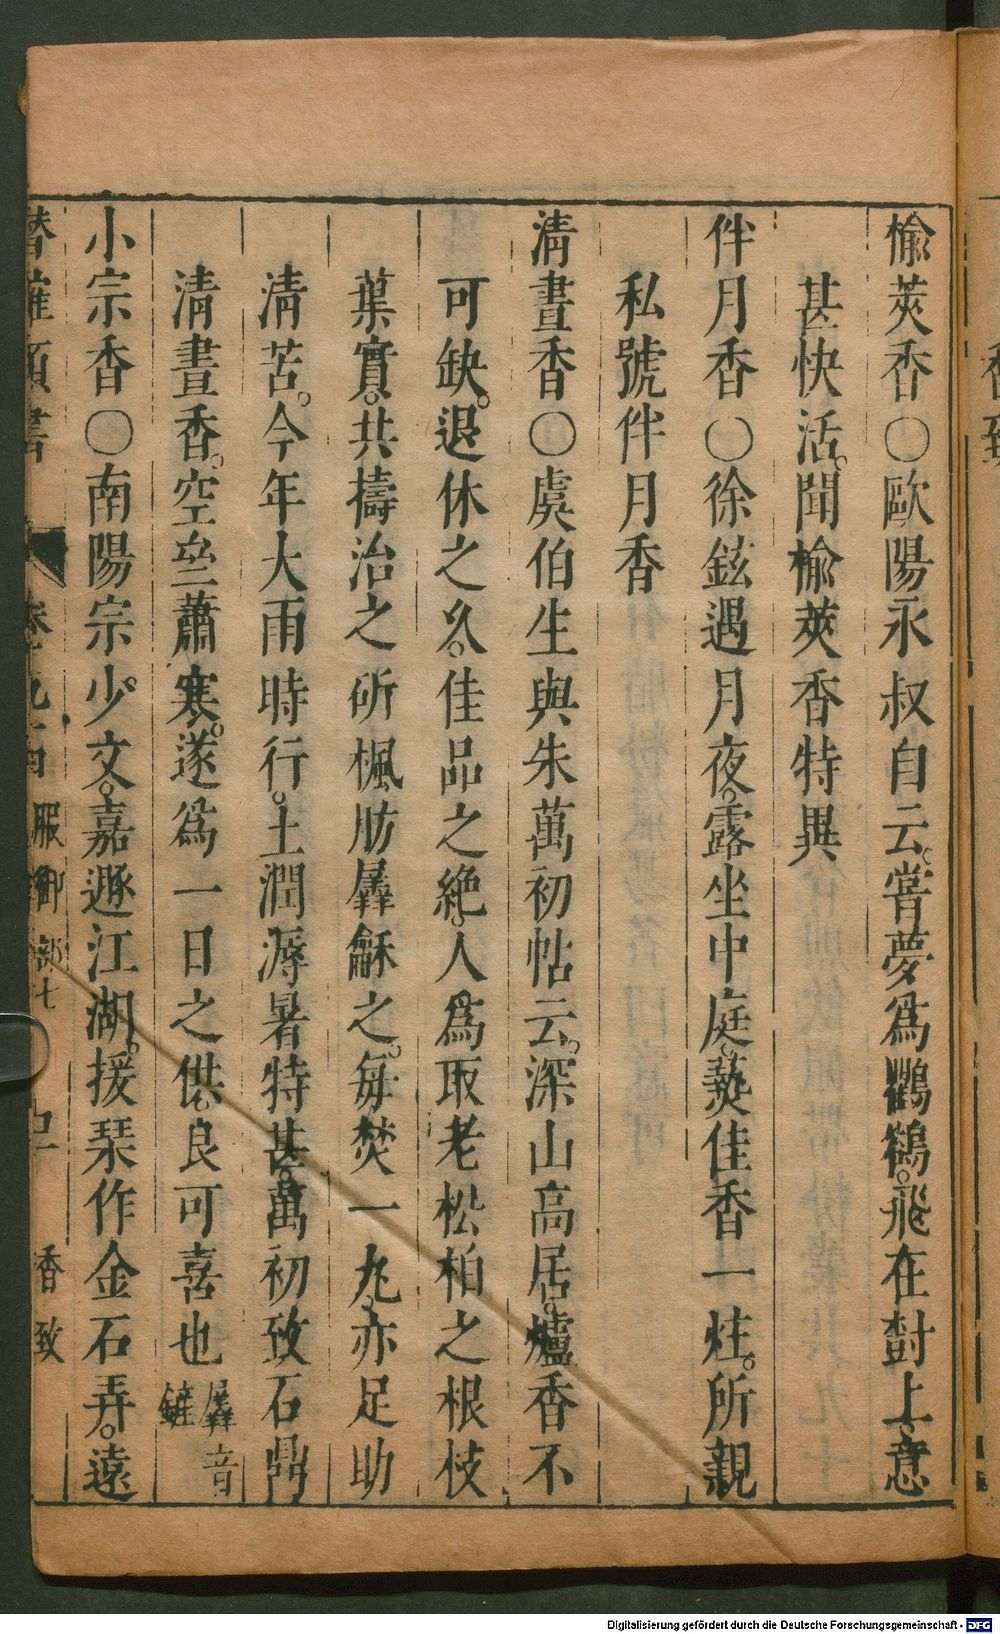 榆莢香○歐陽永叔自云嘗夢爲鸜鵒飛在樹上意
甚快活聞榆莢香特異
伴月香○徐鉉遇月夜露坐中庭爇佳香一炷所親
私號伴月香
清晝香○虞伯生與朱萬初帖云深山高居爐香不
可缺退休之久佳品之絶人爲取老松柏之根枝
葉實共擣治之斫楓肪羼龢之每焚一丸亦足助
清苦今年大雨時行土潤溽暑特甚萬初致石鼎
清晝香空齋蕭寒遂爲一日之供良可喜也 羼音鏟
小宗香○南陽宗少文嘉遯江湖援琹作金石弄遠
服御部七
香致
香致
Digitalisierung gefördert durch die Deutsche Forschungsgemeinschaft - DFG